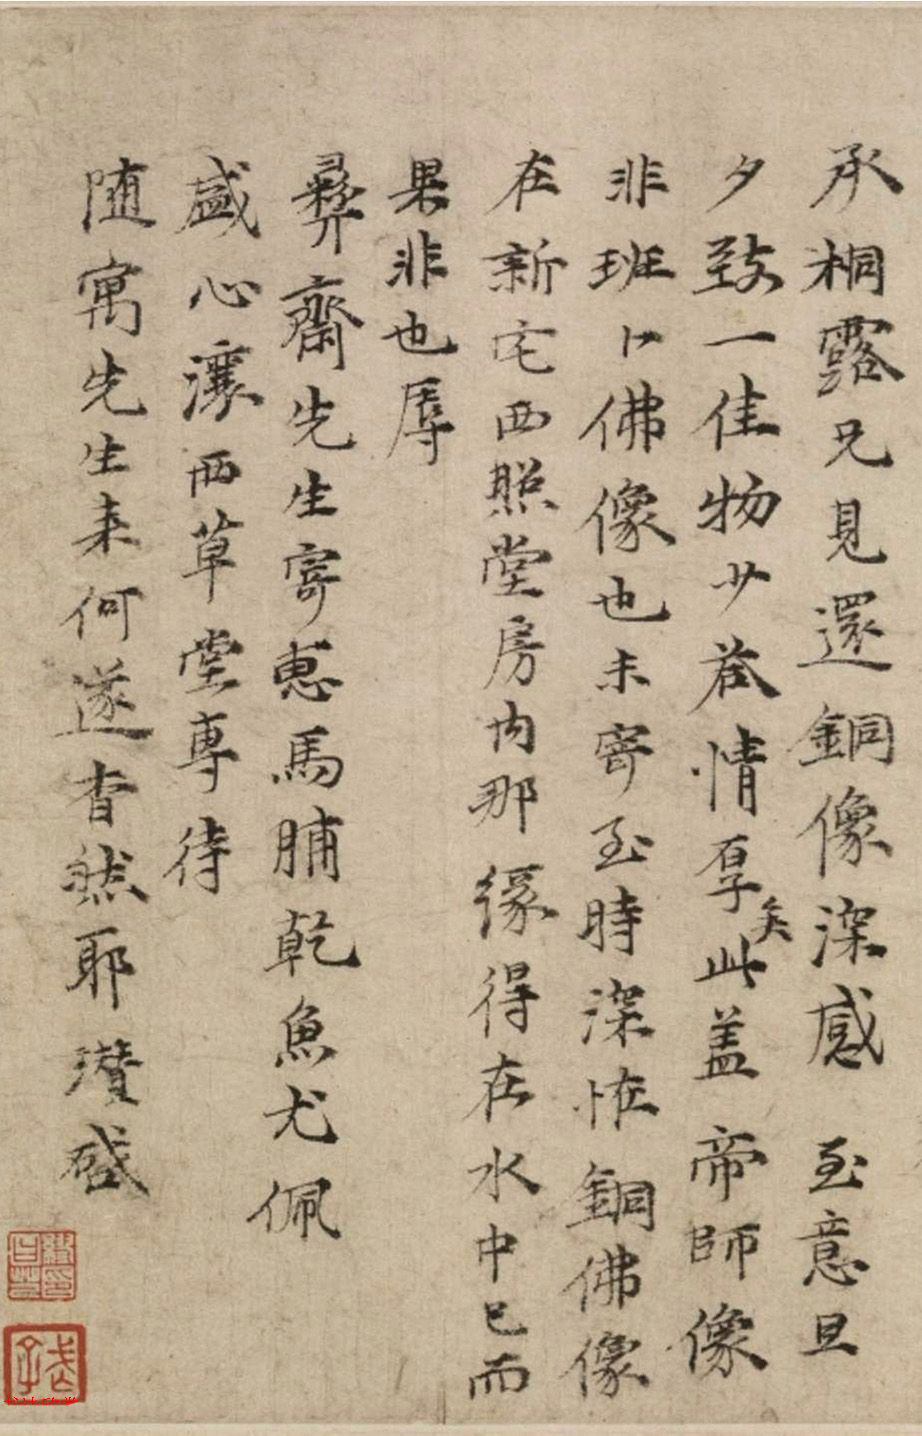 承桐露兄見還銅像深感 至意旦
夕致一佳物少答情厚矣此盖 帝師像
非班卜佛像也未寄至時深恠銅佛像
在新宅西照堂房内那缘得在水中已而
果非也辱
彝齋先生寄惠馬脯乾魚尤佩
盛心瀼西草堂専待
随寓先生来何遂杳然耶瓚啓